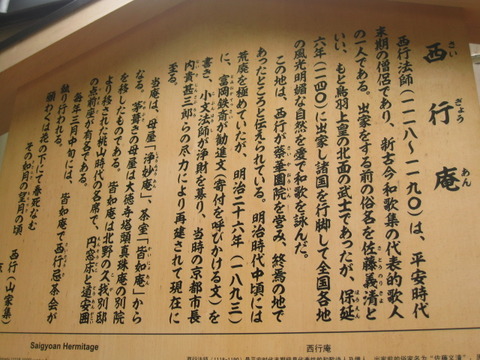 西行庵
さいぎょうあん
西行法師（一一一八～一一九〇）は、平安時代
末期の僧侶であり、新古今和歌集の代表的歌人
の一人である。出家をする前の俗名を佐藤義清と
いい、もと鳥羽上皇の北面の武士であったが、保延
六年（一一四〇）に出家し諸国を行脚して全国各地
の風光明媚な自然を愛で和歌を詠んだ。
この地は、西行が蔡華園院を営み、終焉の地で
あったところと伝えられている。明治時代中頃には
荒廃を極めていたが、明治二十六年（一八九三）
に、富岡鉄斎が勧進文（寄付を呼びかける文）を
書き、小文法師が浄財を募り、当時の京都市長
内貴甚三郎らの尽力により再建されて現在に
至る。
当庵は、母屋「浄妙庵」、茶室「皆如庵」から
なる。茅葺きの母屋は大徳寺塔頭真珠庵の別院
を移したものである。皆如庵は北野の久我別邸
より移された桃山時代の名席で、円窓床と道安囲
の点前座が有名である。
毎年三月中旬には、皆如庵で西行忌茶会が
執り行われる。
願わくは花の下にて春死なむ
その如月の望月の頃
西行（山家集）
京
Saigyoan Hermitage
西行庵